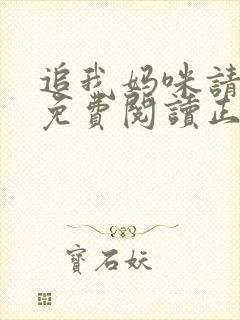 追我妈咪請
免費閱讀正
寶石妖